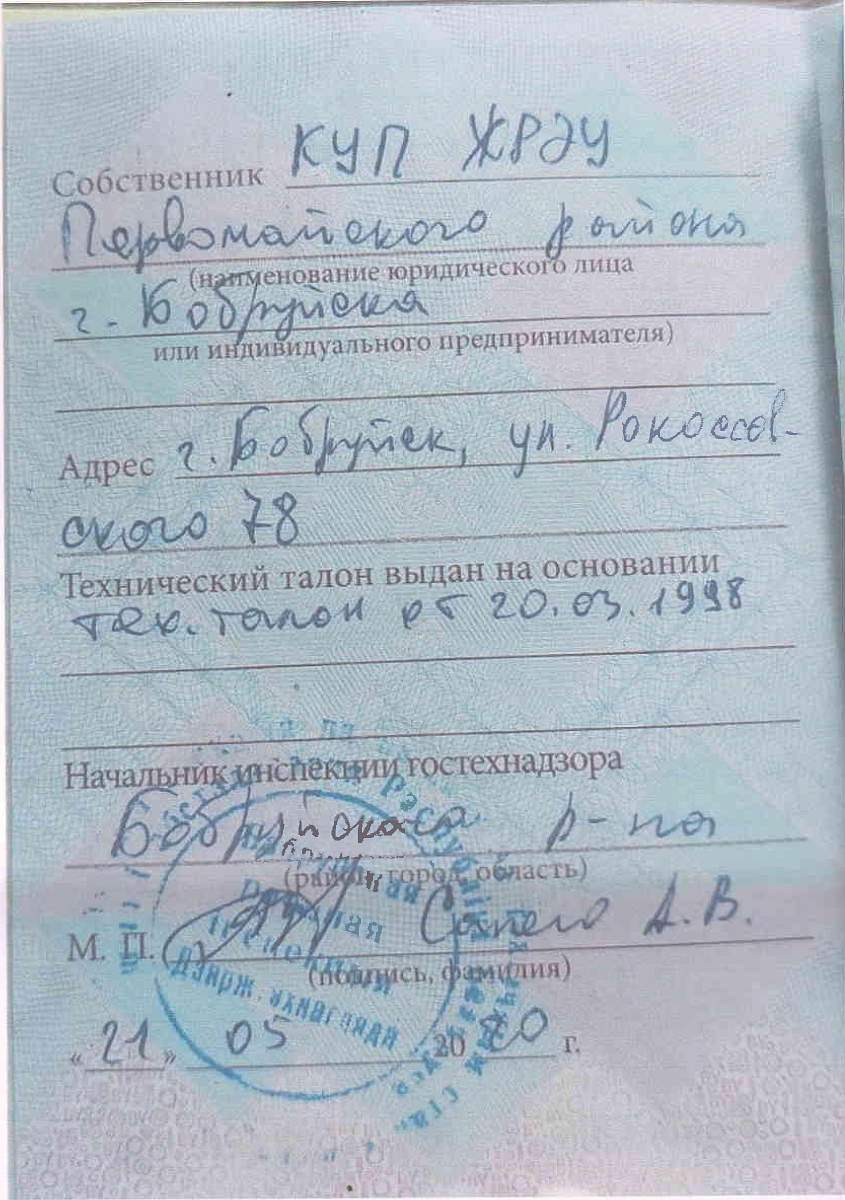 Собственник КУП ЖРЭУ
Первомайского района
(наименование юридического лица
г. Бобруйска
или индивидуального предпринимателя)
Адрес г. Бобруйск, ул. Рокоссов-
ского 78
Технический талон выдан на основании
тех. талон от 20.03.1998
Начальник инспекции гостехнадзора
Бобруйского р-на
(район, город, область)
М. П. Сапего А. В.
(подпись, фамилия)
« 21 » 05 20 20 г.